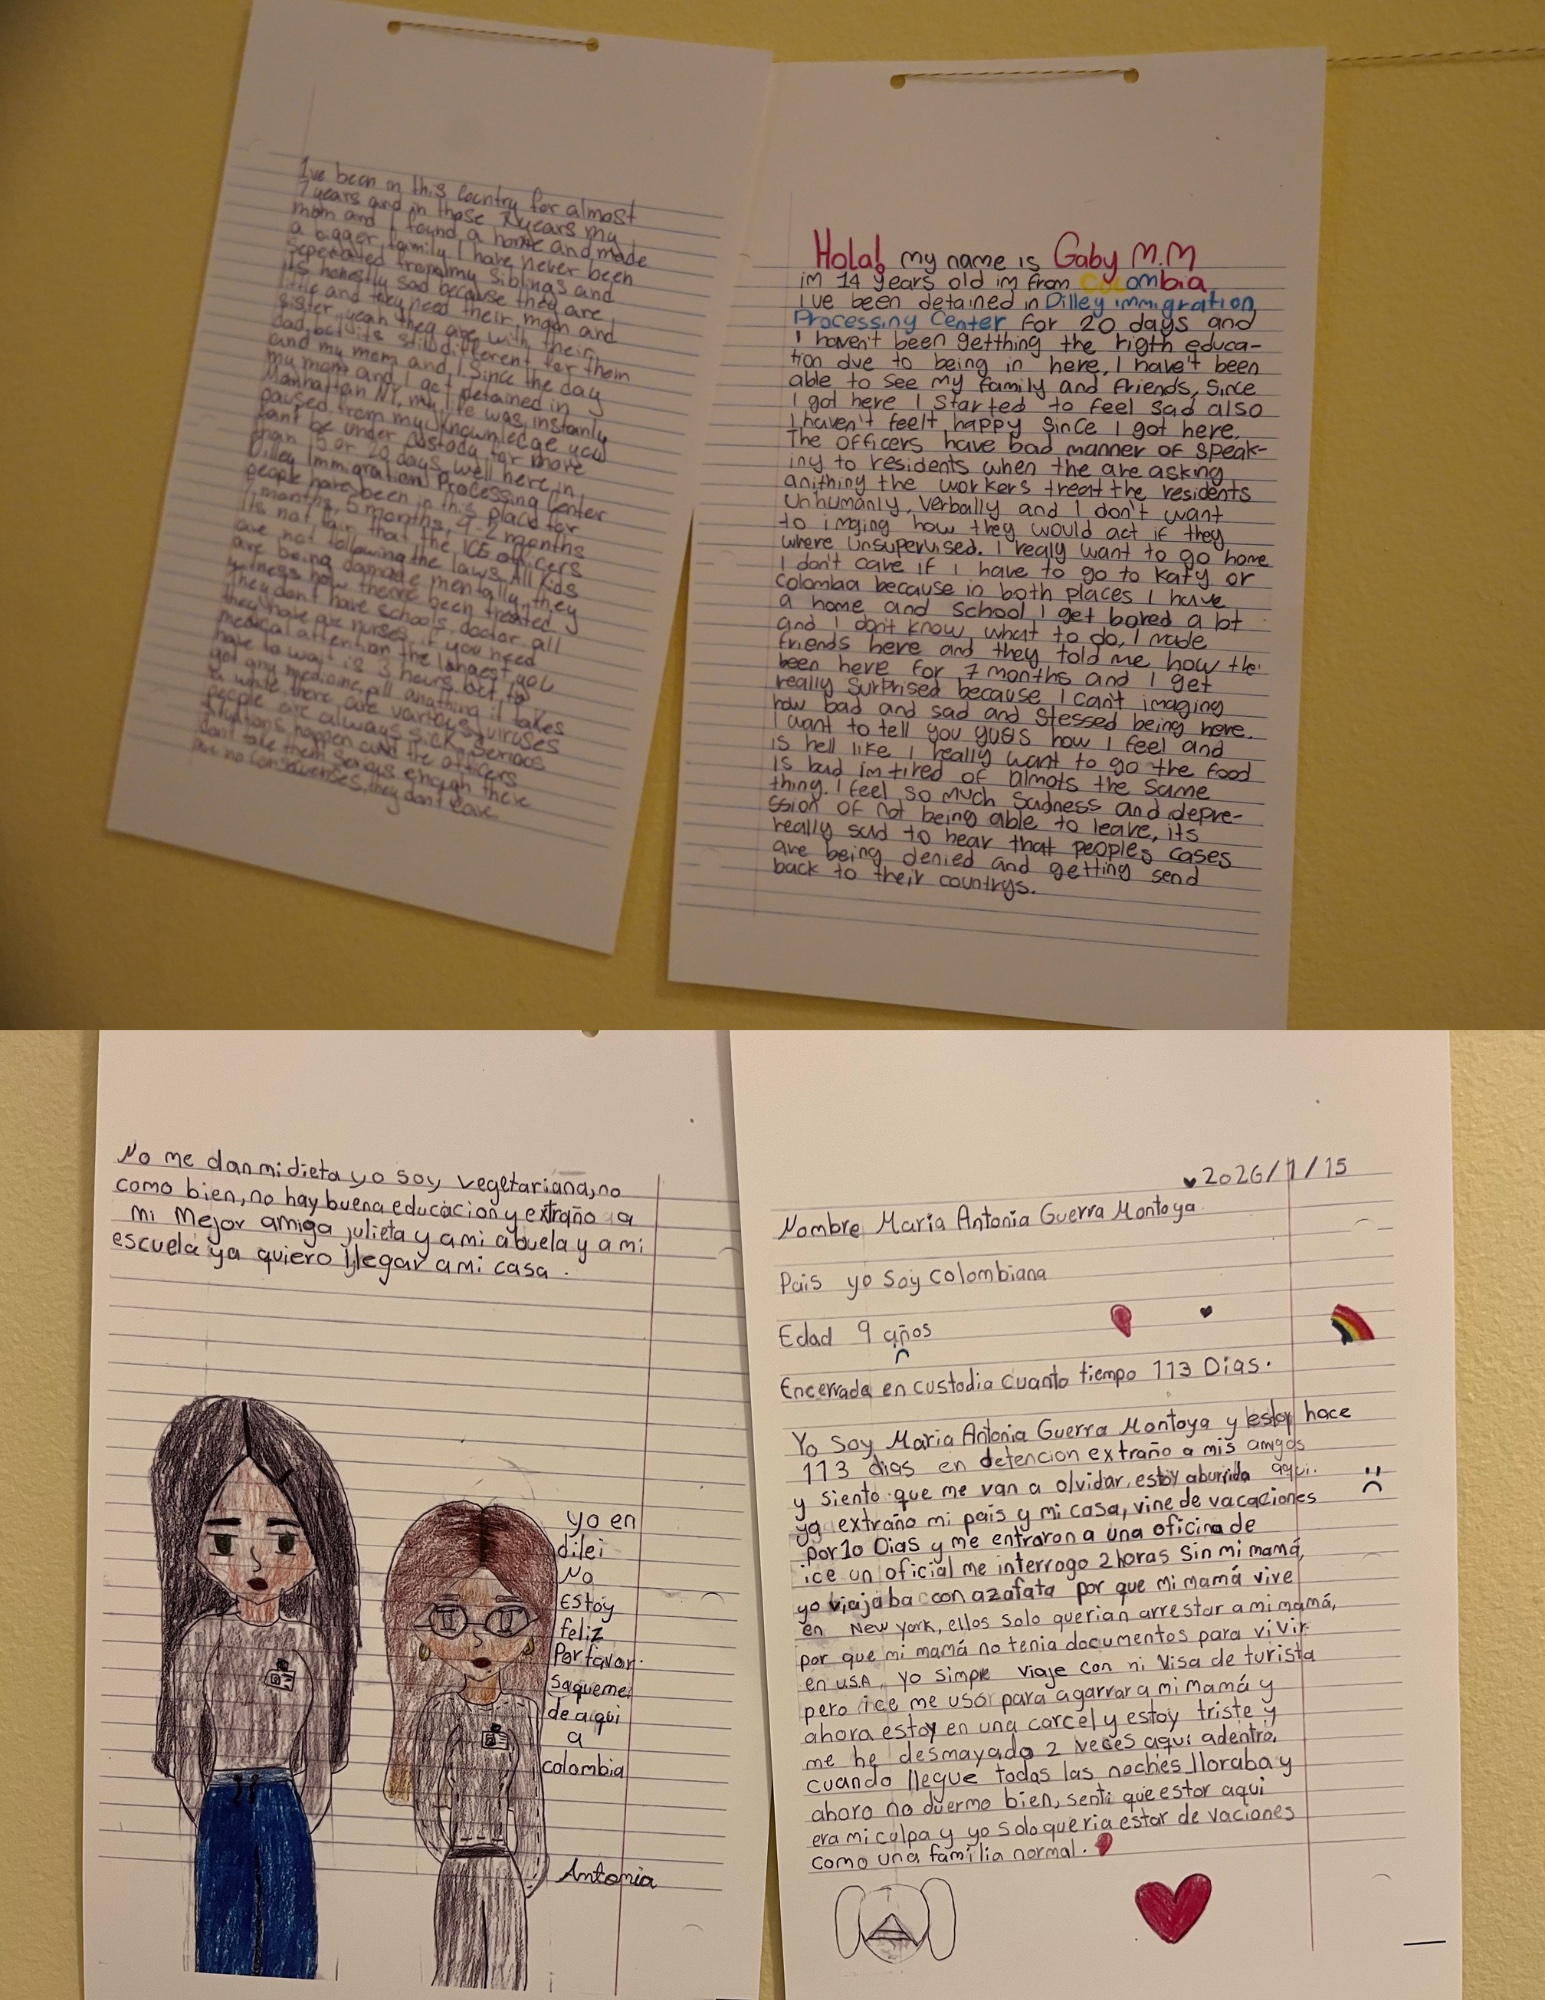 I've been in this country for almost
7 years and in those years my
mom and I found a home and made
a bigger family I have never been
seperated from my siblings and
its honestly sad because they are
little and they need their mom and
sister, yeah they are with their
dad, but its still different for them
and my mom and I. Since the day
my mom and I got detained in
Manhattan NY, my life was instanly
paused. from my knownledge you
cant be under custody for more
than 15 or 20 days, well here in
Dilley Immigration Processing Center
people have been in this place for
7 months, 5 months, 4, 2 months
Its not fair that the ICE officers
are not following the laws. All kids
are being damade mentally, they
witness how been treated
They don't have schools, doctor all
they have are nurses. if you need
medical attention the longest you
have to wait is 3 hours but to
get any medicine, pill, anything it takes
a while, there are various viruses
people are always sick, serious
situtions happen and the officers
dont take them serious enough there
are no they dont care
Hola! my name is Gaby M.M
im 14 years old im from Colombia,
I've been detained in Dilley immigration
Processiny Center for 20 days and
I haven't been getthing the rigth educa-
tion due to being in here, I have't been
able to see my family and friends, since
I got here I started to feel sad also
I haven't feelt happy since I got here.
The officers have bad manner of speak-
iny to residents when the are asking
anithing the workers treat the residents
unhumanly, verbally and I don't want
to imging how they would act if they
where unsupervised. I realy want to go home
I don't care if I have to go to Katy or
Colombaa because in both places I have
a home and school, I get bored a bt
and I don't know what to do, I made
friends here and they told me how the
been here for 7 months and I get
really surprised because I can't imaging
how bad and sad and stessed being here.
I want to tell you guys how I feel and
is hell like I really want to go the food
is bad im tired of almots the same
thing. I feel so much sadness and depre-
ssion of not being able to leave, its
really sad to hear that peoples cases
are being denied and getting send
back to their countrys.
No me dan mi dieta yo soy vegetariana, no
como bien, no hay buena educacion y extraño a
mi mejor amiga julieta y a mi abuela y a mi
escuela ya quiero llegar a mi casa.
yo en
dilei
No
Estoy
feliz
Por favor.
saqueme
de aqui
a
colombia
Antonia
2026/1/15
Nombre Maria Antonia Guerra Montoya
Pais yo soy colombiana
Edad 9 años
Encerrada en custodia cuanto tiempo 113 Dias.
Yo soy Maria Antonia Guerra Montoya y estoy hace
113 dias en detencion extraño a mis amigos
y siento que me van a olvidar, estoy aburrida aqui.
ya extraño mi pais y mi casa, vine de vacaciones
por 10 Dias y me entraron a una oficina de
ice un oficial me interrogo 2 horas sin mi mamá,
yo viajaba con azafata por que mi mamá vive
en New york, ellos solo querian arrestar a mi mamá,
por que mi mamá no tenia documentos para vivir
en USA, yo simpre viaje con mi visa de turista
pero ice me uso para agarrar a mi mamá y
ahora estoy en una carcel y estoy triste y
me he desmayado 2 veces aqui adentro,
cuando llegue todas las noches lloraba y
ahora no duermo bien, senti que estar aqui
era mi culpa y yo solo queria estar de vaciones
como una familia normal.